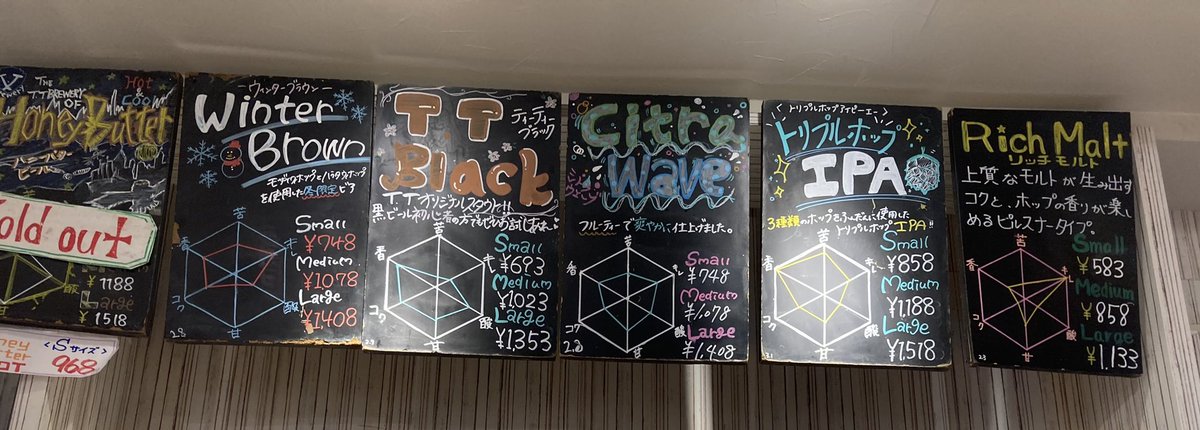 THE
T.T BREWERY
Hot
&
Cool
Honey Butter
ハニーバター
Sold out
酸
1188
Large
1518
<Sサイズ>
968
ーウィンターブラウンー
Winter
Brown
モザイクホップとババラスカホップ
を使用した冬限定ビア
苦
香
キレ
コク
酸
甘
Small
¥748
Medium
¥1078
Large
¥1408
TT
ティーティー
ブラック
Black
T.Tオリジナルスタウト!!
黒ビール初心者の方でもどうぞお試しあれ
苦
香
キレ
コク
酸
甘
Small
¥693
Medium
¥1023
Large
¥1353
Citra
Wave
フルーティーで爽やかに仕上げました。
苦
香
キレ
コク
酸
甘
Small
¥748
Medium
¥1,078
Large
¥1,408
2.8
<トリプルホップアイピーエー>
トリプルホップ
IPA
3種類のホップをふんだんに使用した
トリプルホップIPA!!
苦
香
キレ
コク
酸
甘
Small
¥858
Medium
¥1,188
Large
¥1,518
Rich Malt
リッチモルト
上質なモルトが生み出す
コクと、ホップの香りが楽し
めるピルスナータイプ。
苦
香
キレ
コク
酸
甘
Small
¥583
Medium
¥858
Large
¥1,133